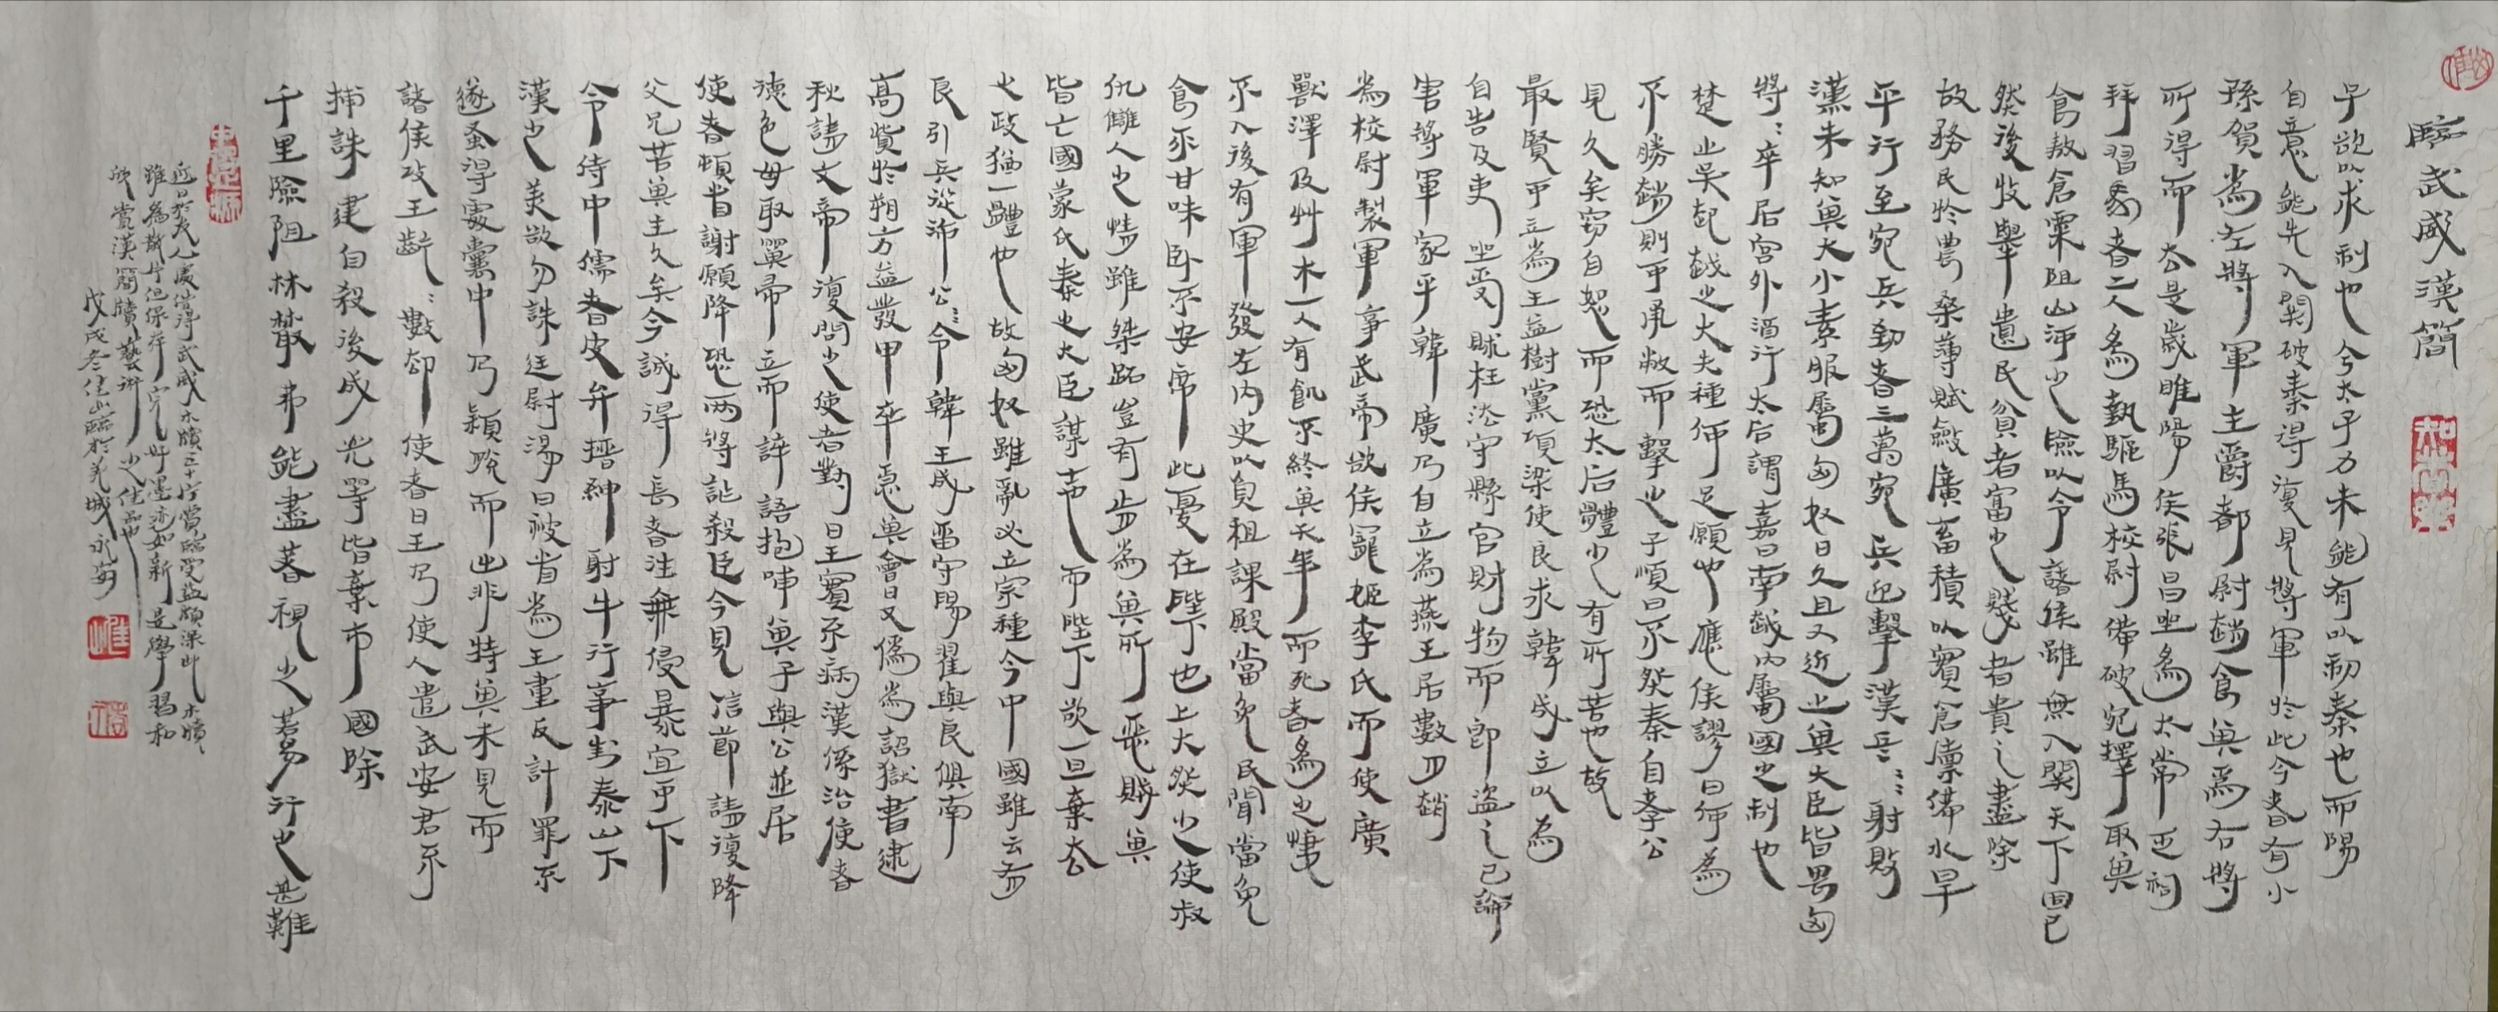 臨武威漢簡
子欲以求制也今太子力未能有以初秦也而陽
自意能先入關破秦得復見將軍於此今者有小
孫賀為左將軍主爵都尉趙食其為右將
所得而去是歲睢陽侯張昌坐為太常乏祠
拜習馬者二人為執驅馬校尉備破宛擇取其
食敖倉粟阻山河之險以令諸侯雖無入關天下固已
然後收舉遺民貧者富之賤者貴之盡除
故務民於農桑薄賦斂廣畜積以實倉廩備水旱
平行至宛兵到者三萬宛兵迎擊漢兵漢兵射敗
漢未知其大小素服屬匈奴日久且又近之其大臣皆畏匈
將將卒居宮外酒行太后謂嘉曰南越內屬國之利也
楚之吳起越之大夫種何足願也應侯謬曰何為
不勝趙則可承敝而擊之子順曰不然秦自孝公
見久矣竊自恕而恐太后體之有所苦也故
最賢可立為王益樹黨項梁使良求韓成立以為
自告及吏坐受賕枉法守縣官財物而即盜之已論
害將軍家乎韓廣乃自立為燕王居數月趙
為校尉製軍事武帝欲侯寵姬李氏而使廣
獸澤及艸木一人有飢不終其天年而死者為之悽
不入後有軍發左內史以負租課殿當免民聞當免
食不甘味臥不安席此憂在陛下也上大然之使叔
仇讎人之情雖桀跖豈有步為其所惡賊其
皆亡國蒙氏秦之大臣謀士也而陛下欲一旦棄去
之政猶一體也故匈奴雖亂必立宗種今中國雖云有
良引兵從沛公沛公令韓王成留守陽翟與良俱南
高貲於朔方益發甲卒急與會日又偽為詔獄書逮
秋請文帝復問之使者對曰王實不病漢係治使者
德色母取箕帚立而誶語抱哺其子與公並居
使者頓首謝願降恐兩將詐殺臣今見信節請復降
父兄苦其主久矣今誠得長者往無侵暴宜可下
令侍中儒者皮弁搢紳射牛行事封泰山下
漢之美欲勿誅廷尉湯曰被首為王畫反計罪不
遂蚤得處囊中乃穎脫而出非特其末見而
諸侯攻王斷斷數卻使者曰王乃使人遣武安君不
捕誅建自殺後成光等皆棄市國除
千里險阻林叢弗能盡著視之若易行之甚難
近日於友人處借得武威木牘三十片嘗臨受益頗深此木牘
雖為散片但保存完好墨迹如新是學習和
欣賞漢簡牘藝術之佳品也
戊戌冬佳山臨於羌城永安